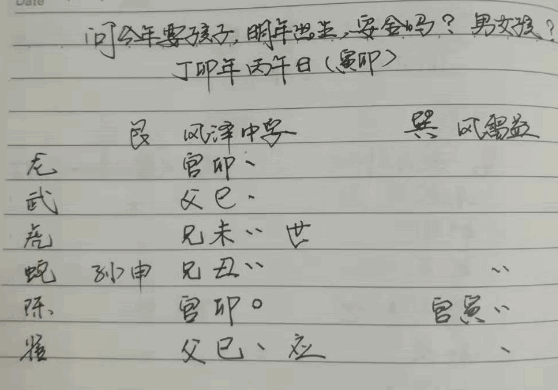 Date
问今年要孩子,明年出生,安全吗?男女孩?
丁卯年丙午日(寅卯)
艮 风泽中孚 巽 风雷益
龙 官卯、
武 父巳、
虎 兄未、、 世
蛇 孙申 兄丑、、 、、
陈 官卯○ 官寅、、
雀 父巳、应 、